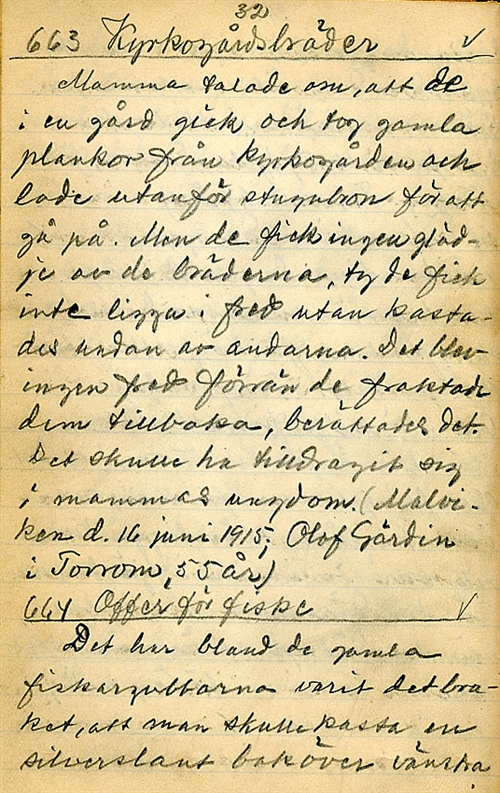 32
663 Kyrkogårdsbräder √
Mamma talade om, att de
i en gård gick och tog gamla
plankor från kyrkogården och
lade utanför stugubron för att
gå på. Men de fick ingen gläd-
je av de bräderna, ty de fick
inte ligga i fred utan kasta-
des undan av andarna. Det blev
ingen fred förrän de fraktade
dem tillbaka, berättades det.
Det skulle ha tilldragit sig
i mammas ungdom. (Malvi-
ken d. 16 juni 1915; Olof Gärdin
i Torrom, 55 år)
664 Offer för fiske √
Det har bland de gamla
fiskargubbarna varit det bru-
ket, att man skulle kasta en
silverslant baköver vänstra